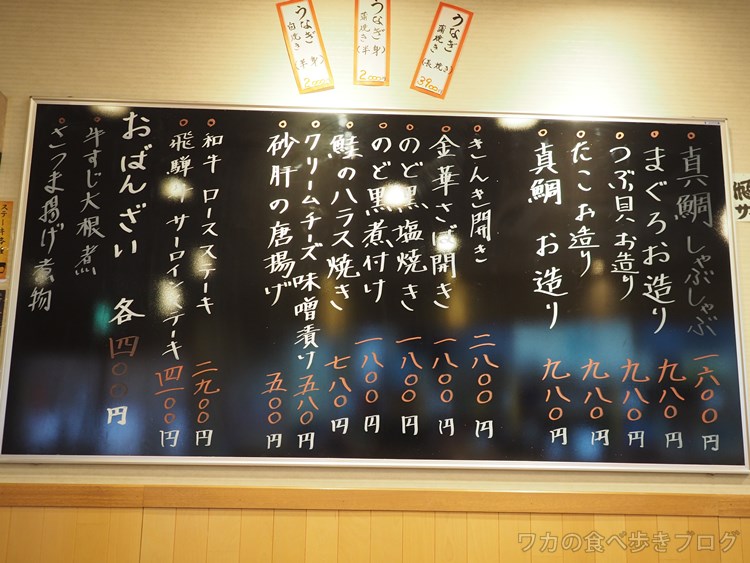 うなぎ
白焼き(半身)
2,000
うなぎ
蒲焼き(半身)
2,000
うなぎ
蒲焼き(長焼き)
3900
真鯛しゃぶしゃぶ 一六〇〇円
まぐろお造り 九八〇円
つぶ貝お造り 九八〇円
たこお造り 九八〇円
真鯛 お造り 九八〇円
きんき開き 二八〇〇円
金華さば開き 一八〇〇円
のど黒塩焼き 一八〇〇円
のど黒煮付け 一八〇〇円
鮭のハラス焼き 七八〇円
クリームチーズ味噌漬け 五八〇円
砂肝の唐揚げ 五〇〇円
和牛 ロースステーキ 二九〇〇円
飛騨牛 サーロインステーキ 四一〇〇円
おばんざい 各四〇〇円
牛すじ大根煮
さつま揚げ煮物
ワカの食べ歩きブログ